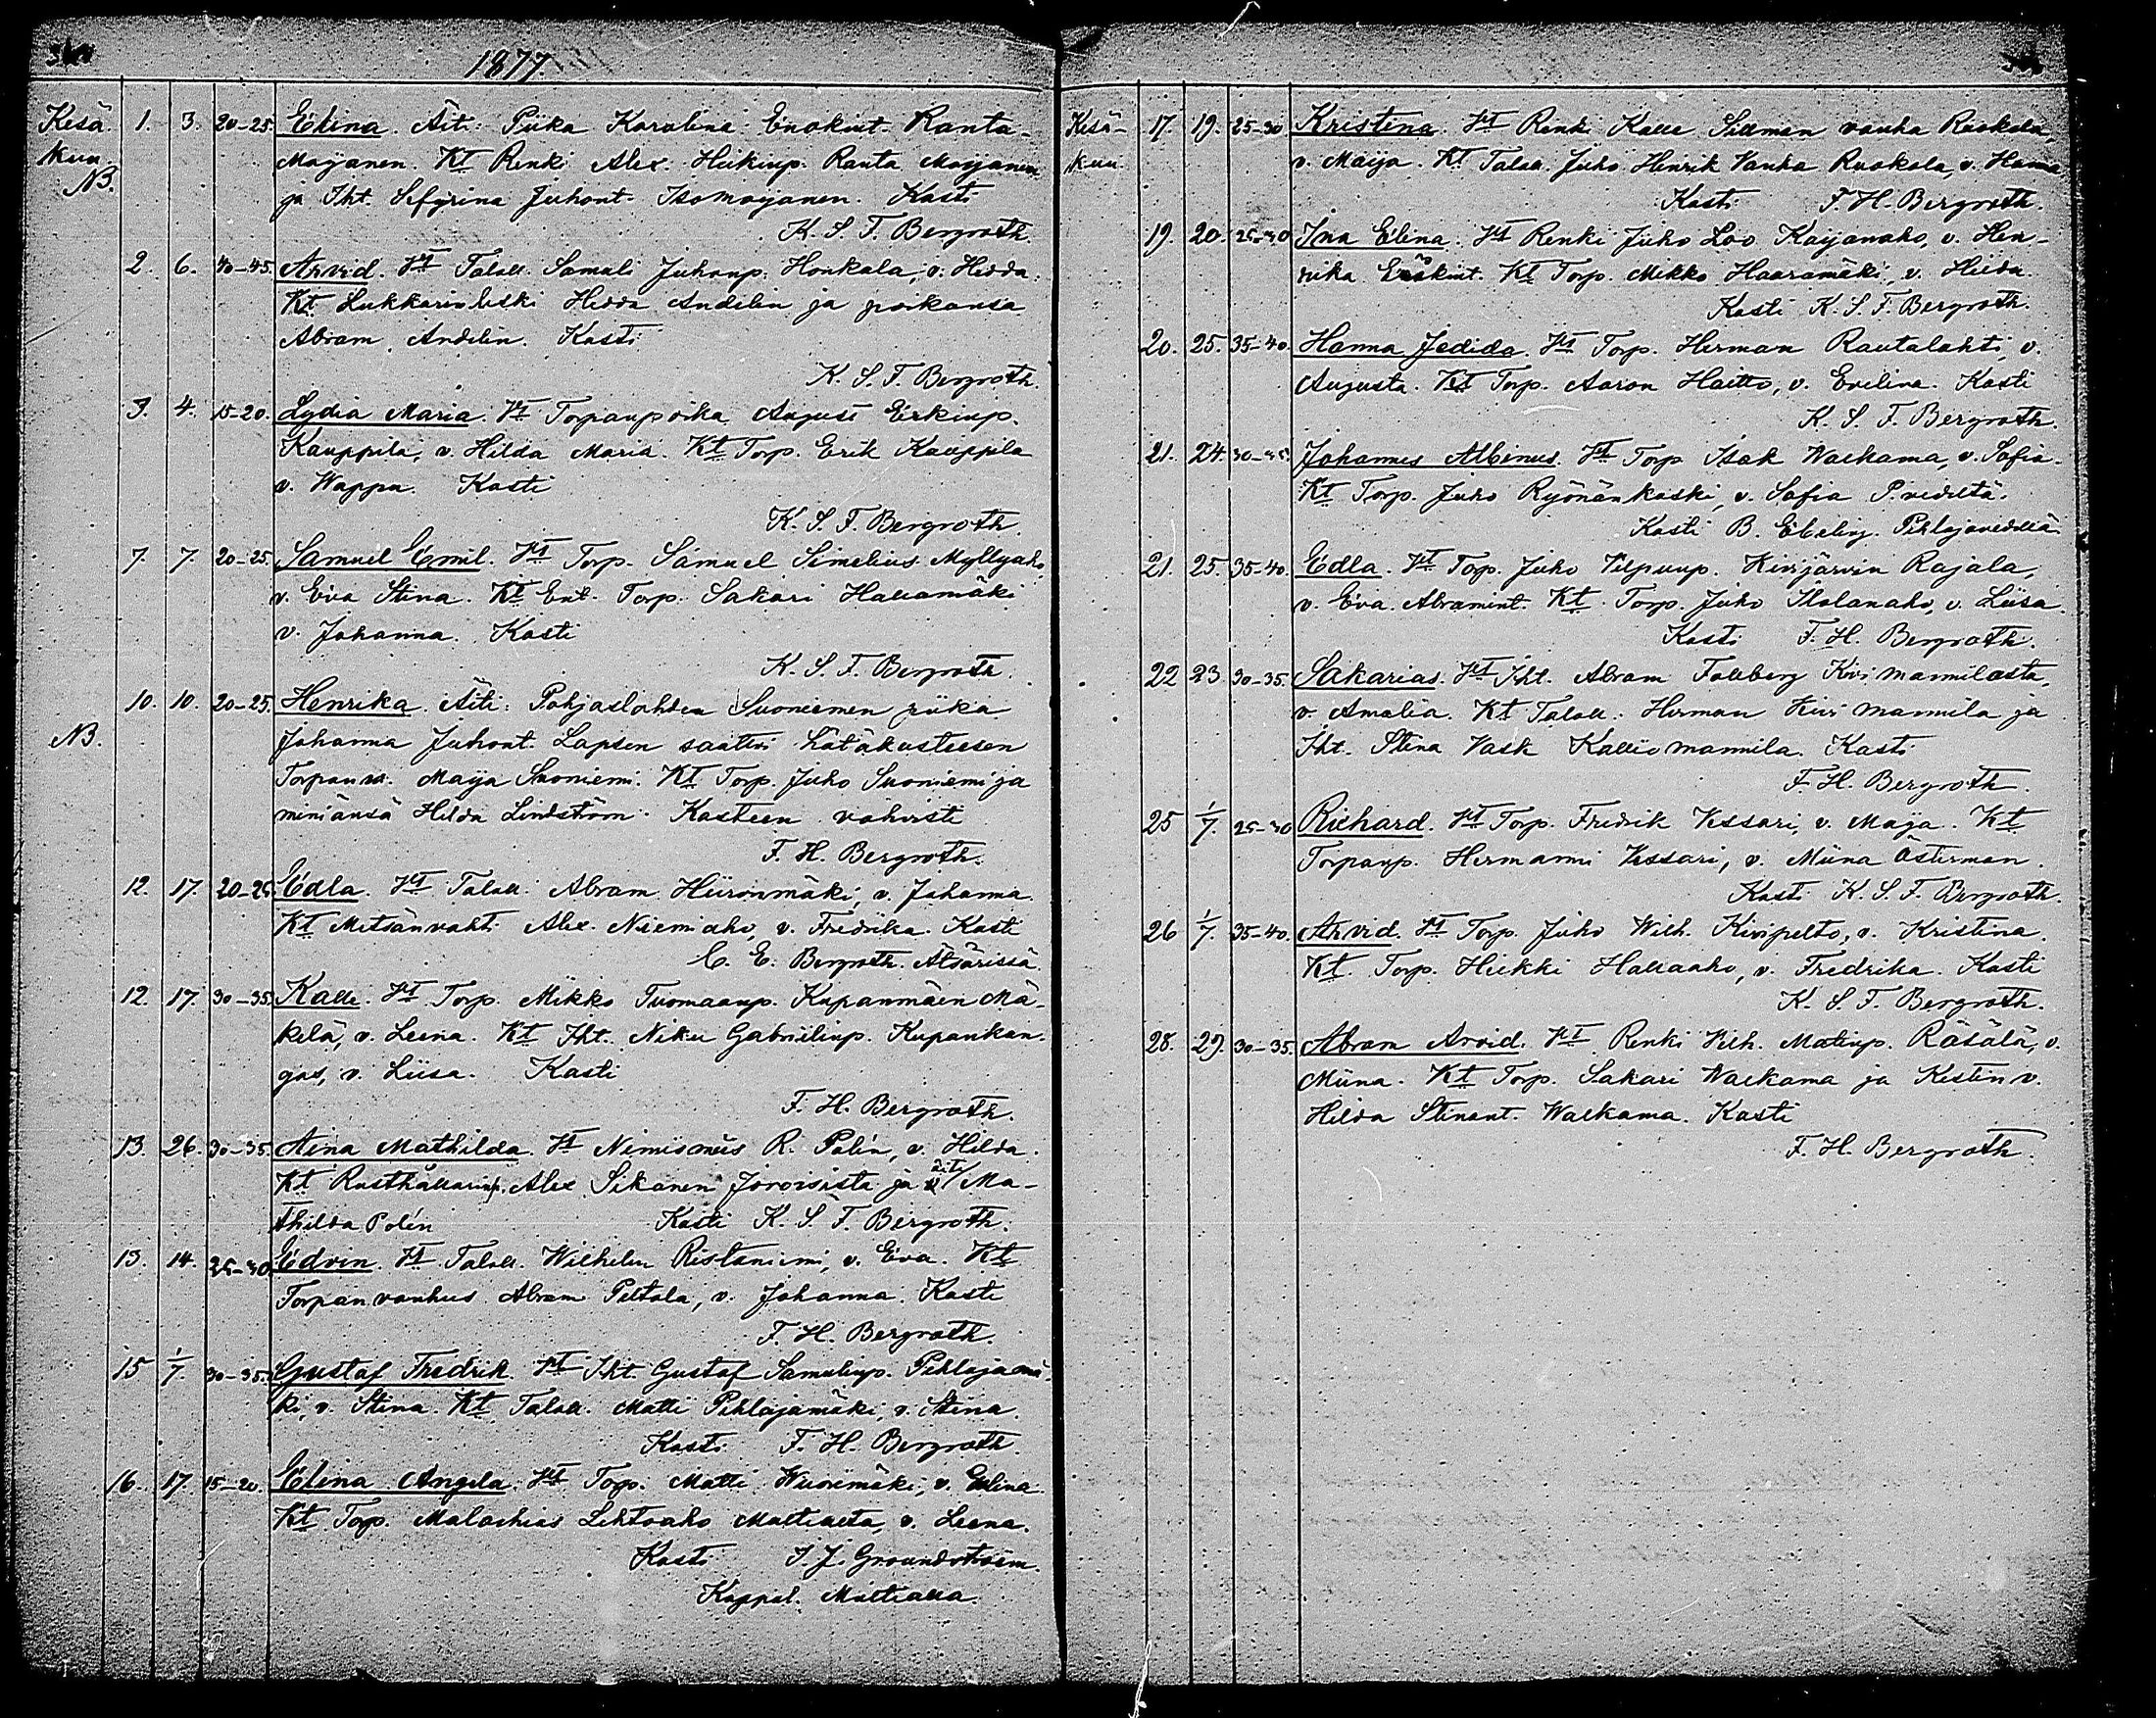 1877.
Kesä- 1. 3. 20-25. Elina. Äiti: Piika Karolina Enokint. Ranta-
kuu. Maijanen. Kt Renki Alex. Heikinp. Ranta Maijanen
NB. ja Iht. Sefyrina Juhont. Isomaijanen. Kasti
K. S. F. Bergroth.
2. 6. 40-45. Arvid. Vt Taloll. Samuli Juhonp. Honkala, v. Hedda.
Kt Lukkarin leski Hedda Andelin ja poikansa
Abram Andelin. Kasti
K. S. F. Bergroth.
3. 4. 15-20. Lydia Maria. Vt Torpanpoika August Erkinp.
Kauppila, v. Hilda Maria. Kt Torp. Erik Kauppila
v. Wappu. Kasti
K. S. F. Bergroth.
7. 7. 20-25. Samuel Emil. Vt Torp. Samuel Simelius Myllyaho,
v. Eva Stina. Kt Ent. Torp. Sakari Hallamäki
v. Johanna. Kasti
K. S. F. Bergroth.
10. 10. 20-25. Henrika. Äiti: Pohjaslahden Suoniemen piika
NB. Johanna Juhont. Lapsen saatti hätäkasteesen
Torpan v. Maija Suoniemi. Kt Torp. Juho Suoniemi ja
miniänsä Hilda Lindström. Kasteen vahvisti
F. H. Bergroth.
12. 17. 20-25. Edla. Vt Taloll. Abram Hiironmäki, v. Johanna.
Kt Metsänvahti Alex. Niemiaho, v. Fredrika. Kasti
C. E. Bergroth. Ätsärissä.
12. 17. 30-35. Kalle. Vt Torp. Mikko Tuomaanp. Kupanmäen Mä-
kelä, v. Leena. Kt Iht. Niku Gabrielinp. Kupankan-
gas, v. Liisa. Kasti
F. H. Bergroth.
13. 26. 30-35. Aina Mathilda. Vt Nimismies R. Polén, v. Hilda.
Kt Rusthållarinp. Alex Sikanen Joroisista ja äiti Ma-
thilda Polén Kasti K. S. F. Bergroth.
13. 14. 25-30. Edvin. Vt Taloll. Wilhelm Ristaniemi, v. Eva. Kt
Torpan vanhus Abram Peltola, v. Johanna. Kasti
F. H. Bergroth.
15 1/7. 30-35. Gustaf Fredrik. Vt Iht. Gustaf Samulinp. Pihlajamä-
ki, v. Stina. Kt Taloll. Matti Pihlajamäki, v. Stina.
Kasti F. H. Bergroth.
16. 17. 15-20. Elina Angela. Vt Torp. Matti Wuorimäki, v. Elina.
Kt Torp. Malachias Lehtoaho Multialta, v. Leena.
Kasti I. J. Groundstroem.
Kappal. Multialla.
Kesä- 17. 19. 25-30 Kristina. Vt Renki Kalle Sillman vanha Ruokola
kuu v. Maija. Kt Taloll. Juho Henrik Vanha Ruokola, v. Hanna
Kasti F. H. Bergroth.
19. 20. 25-30 Ina Elina. Vt Renki Juho Loo Kaijanaho, v. Hen-
rika Kt Torp. Mikko Haaramäki, v. Heeda.
Kasti K. S. F. Bergroth.
20. 25. 35-40. Hanna Jedida. Vt Torp. Herman Rautalahti, v.
Augusta. Kt Torp. Aaron Haitto, v. Evelina. Kasti
K. S. F. Bergroth.
21. 24. 30-35. Johannes Albinus. Vt Torp. Isak Walkama, v. Sofia.
Kt Torp. Juho Ryönänkoski, v. Sofia P.vedeltä.
Kasti B. Ebeling. Pihlajavedellä.
21. 25. 35-40. Edla. Vt Torp. Juho Vilpunp. Kivijärven Rajala,
v. Eva Abramint. Kt Torp. Juho Iholanaho, v. Liisa.
Kasti F. H. Bergroth.
22 23. 30-35. Sakarias. Vt Iht. Abram Fallberg Kivi mannilasta,
v. Amalia. Kt Taloll. Herman Kivi mannila ja
Iht. Stina Vask Kallio mannila. Kasti
F. H. Bergroth.
25 1/7. 25-30 Richard. Vt Torp. Fredrik Vessari, v. Maija. Kt
Torpanp. Hermanni Vessari, v. Miina Österman.
Kasti K. S. F. Bergroth.
26 1/7. 35-40. Arvid. Vt Torp. Juho Wilh. Kivipelto, v. Kristina.
Kt. Torp. Heikki Hallaaho, v. Fredrika. Kasti
K. S. F. Bergroth.
28. 29. 30-35. Abram Arvid. Vt Renki Vilh. Matinp. Räsälä, v.
Miina. Kt Torp. Sakari Walkama ja Kestin v.
Hilda Stenant. Walkama. Kasti
F. H. Bergroth.